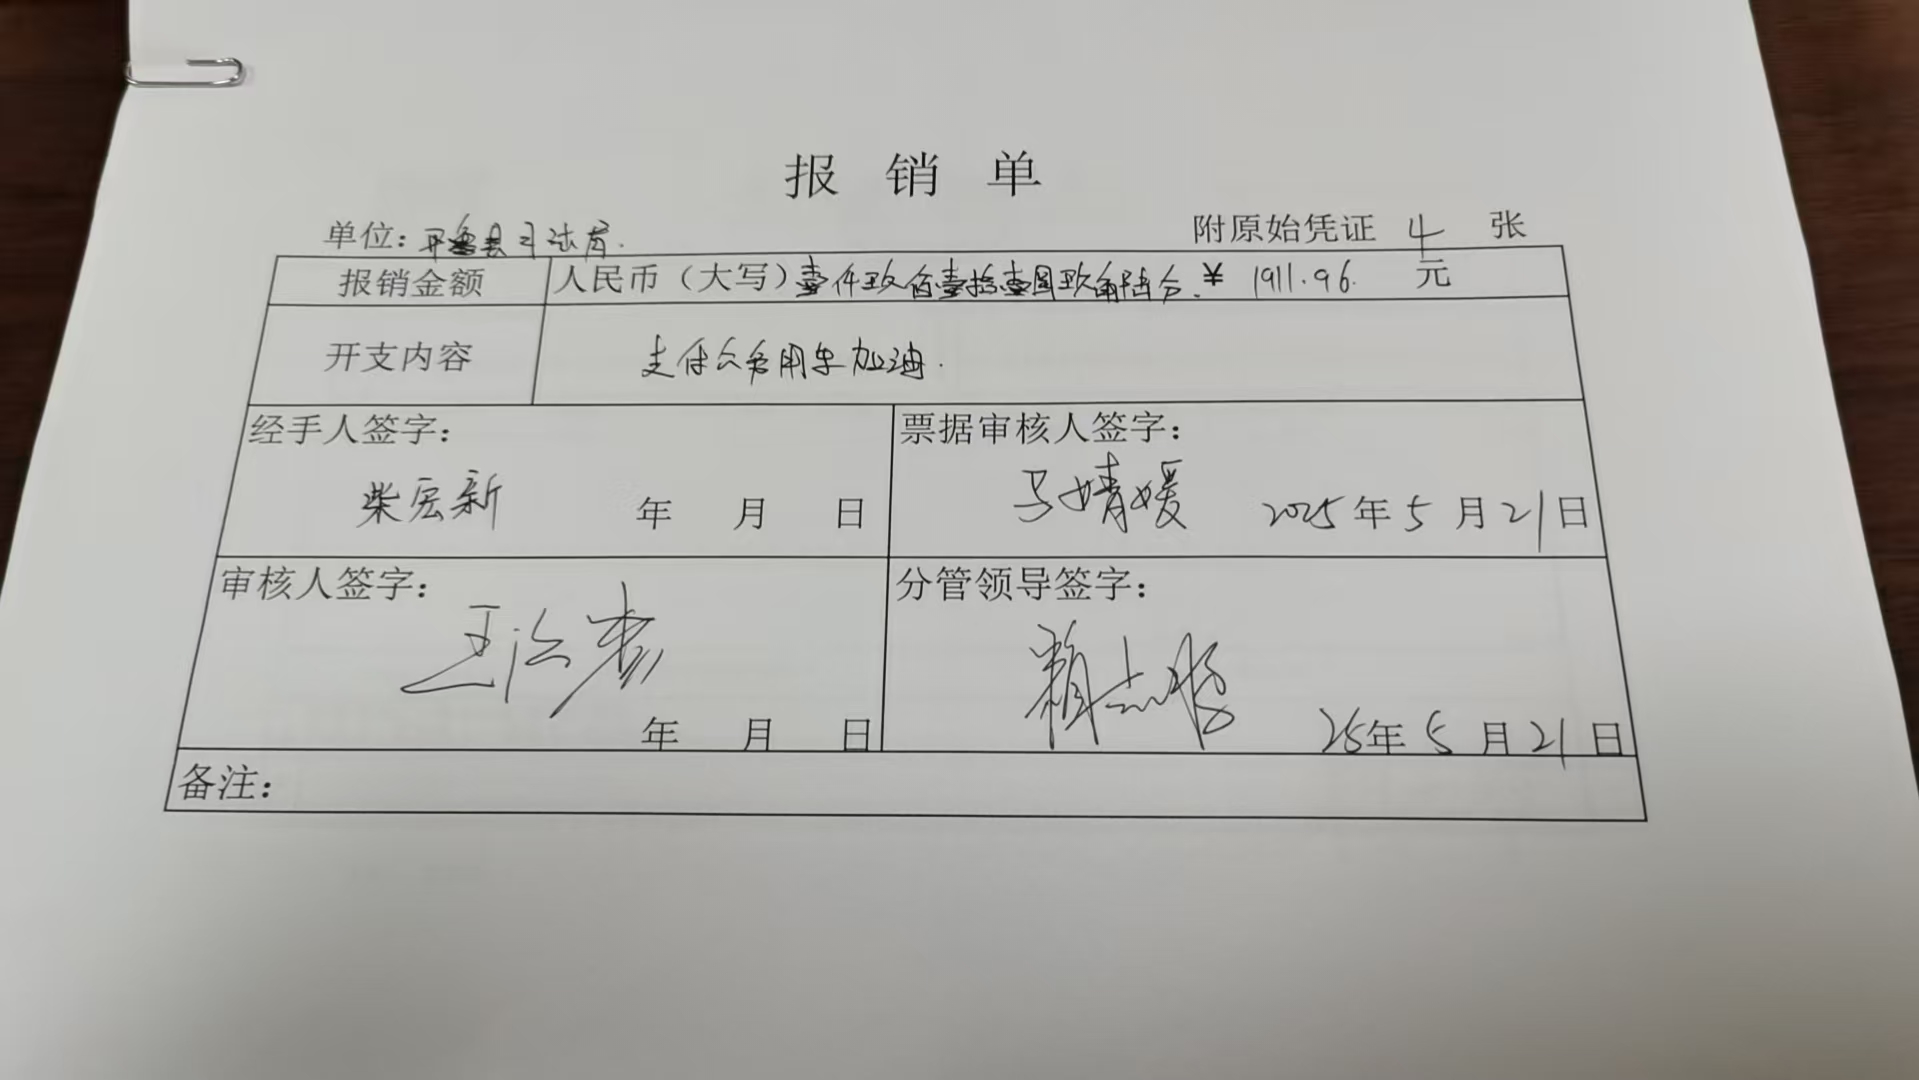 报销单
单位：开鲁县司法局. 附原始凭证 4 张
报销金额 人民币（大写）壹仟玖佰壹拾壹圆玖角陆分. ¥ 1911.96. 元
开支内容 支付公务用车加油.
经手人签字： 票据审核人签字：
柴宏新 年 月 日 马婧媛 2025年5月21日
审核人签字： 分管领导签字：
王 志
年 月 日 25年5月21日
备注：